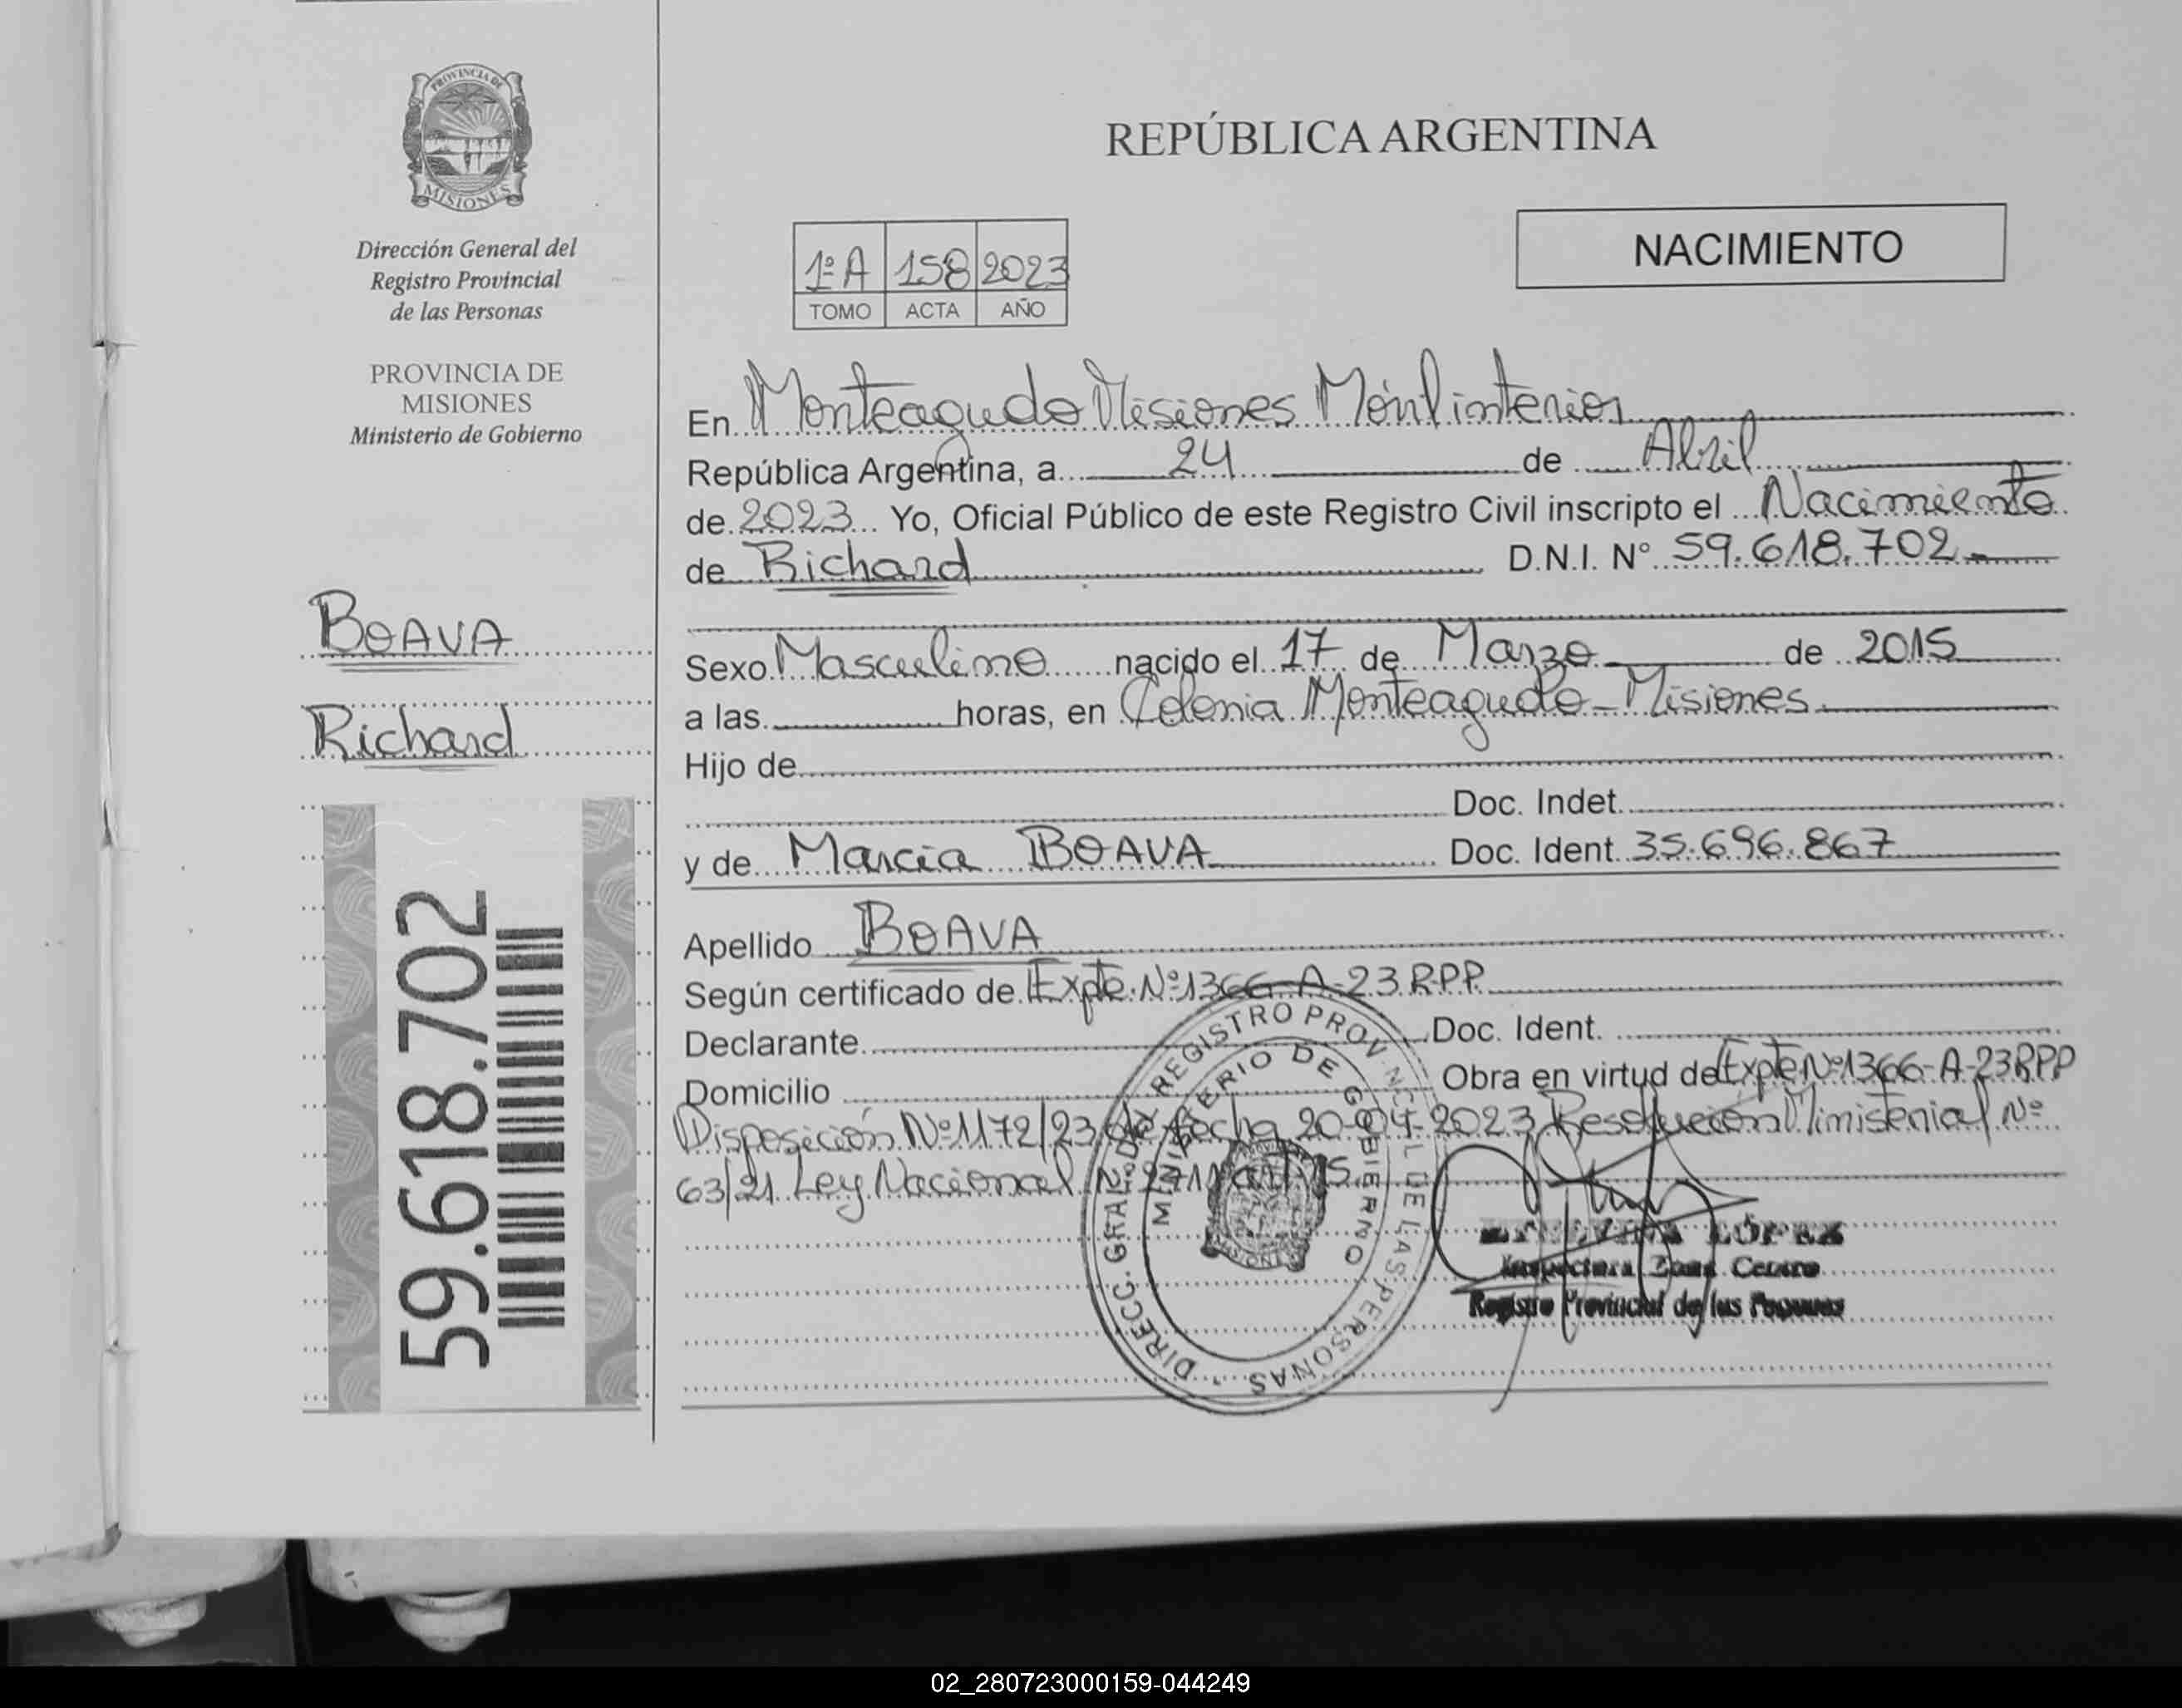 PROVINCIA DE
MISIONES
Dirección General del
Registro Provincial
de las Personas
PROVINCIA DE
MISIONES
Ministerio de Gobierno
BOAVA
Richard
59.618.702
REPÚBLICA ARGENTINA
NACIMIENTO
1º A 158 2023
TOMO ACTA AÑO
En Monteagudo Misiones Móvil interior
República Argentina, a 24 de Abril
de 2023 Yo, Oficial Público de este Registro Civil inscripto el Nacimiento
de Richard D.N.I. N° 59.618.702
Sexo Masculino nacido el 17 de Marzo de 2015
a las horas, en Colonia Monteagudo - Misiones
Hijo de
Doc. Indet.
y de Marcia BOAVA Doc. Ident. 35.696.867
Apellido BOAVA
Según certificado de Expte. Nº 1366-A-23 RPP
Declarante Doc. Ident.
Domicilio Obra en virtud de Expte Nº 1366-A-23 RPP
Disposición Nº 1172/23 de fecha 20-04-2023 Resolución Ministerial Nº
63/21 Ley Nacional
DIRECC. GRAL. DEL REGISTRO PROVINCIAL DE LAS PERSONAS
MINISTERIO DE GOBIERNO
MISIONES
LÓPEZ
Inspectora Zona Centro
Registro Provincial de las Personas
02_280723000159-044249